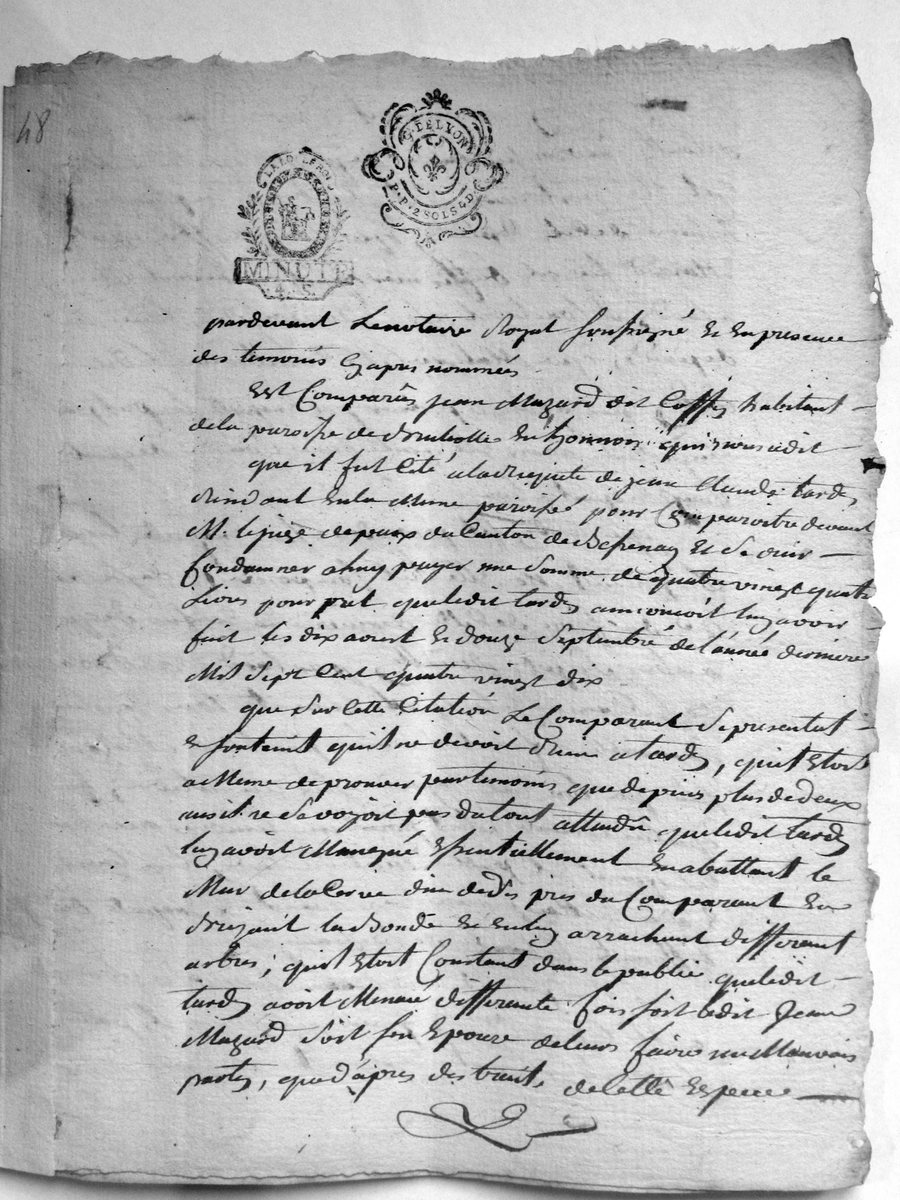 48
G. DE LYON
P. P. 2 SOLS 4 D
LA LOI LE ROI
MINUTE
4. S.
pardevant Le notaire Royal soussigné Et En presence
des temoins Cy apres nommés
Est Comparûs jean Mazard dit Coffy habitant
de la paroisse de Brulliolle En Lyonnois qui nous a dit
que il fut Cité a la Requete de jean Claude tardy
Residant En la Meme paroisse pour Comparoitre devant
M. le juge de paix du Canton de Bessenay Et Se ouir
Condamner a luy payer une Somme de quatre vingt quatre
Livres pour pret que ledit tardy annoncoit luy avoir
fait les dix aoust Et douze Septembre de l'année derniere
Mil Sept Cent quatre vingt dix
que Sur Cette Citation Le Comparant Se presentat
Et Soutint qu'il ne devoit Rien a tardy, qu'il Etoit
a Meme de prouver par temoins que depuis plus de deux
ans il ne Se voyoit pas du tout attendu que ledit tardy
luy avoit Manqué Essentiellement En abattant le
Mur de la Serve d'un de Ses pres du Comparant En
Brizant la Bonde Et En luy arrachant different
arbres; qu'il Etoit Constant dans le public que ledit
tardy avoit Menacé differente fois soit ledit Jean
Mazard Soit Son Epouse de leurs faire un Mauvais
party, que d'apres des traits de Cette Espece